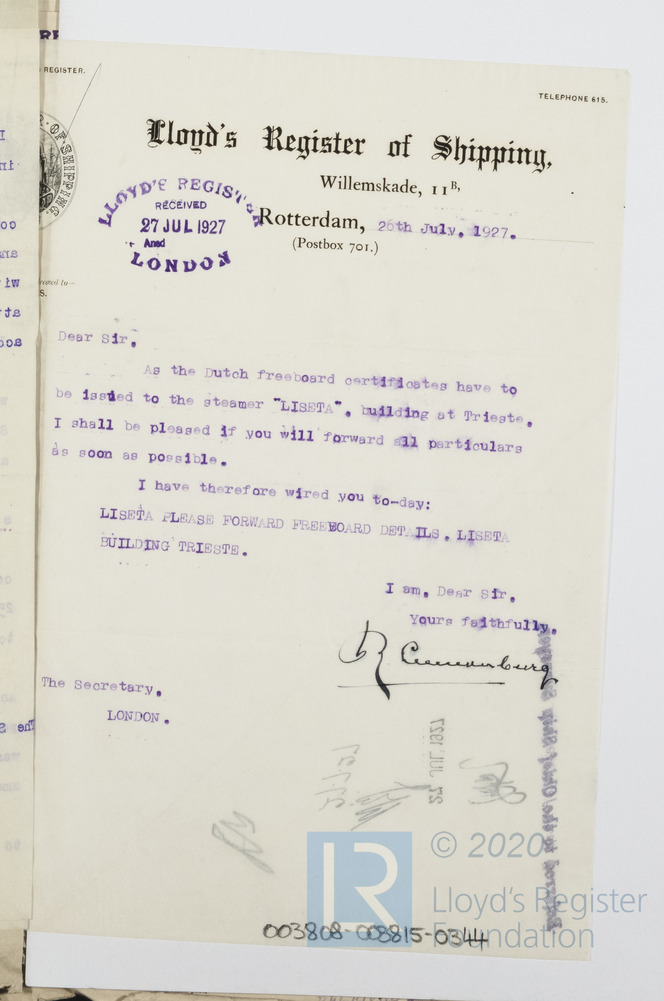 REGISTER.
TELEPHONE 615.
Lloyd's Register of Shipping,
Willemskade, 11B,
LLOYD'S REGISTER
RECEIVED
27 JUL 1927
Ansd
LONDON
Rotterdam, 26th July, 1927.
(Postbox 701.)
Dear Sir,
As the Dutch freeboard certificates have to
be issued to the steamer "LISETA", building at Trieste,
I shall be pleased if you will forward all particulars
as soon as possible.
I have therefore wired you to-day:
LISETA PLEASE FORWARD FREEBOARD DETAILS. LISETA
BUILDING TRIESTE.
I am, Dear Sir,
Yours faithfully,
The Secretary,
LONDON.
27 JUL 1927
LR
© 2020
Lloyd's Register
Foundation
003808-003815-0344